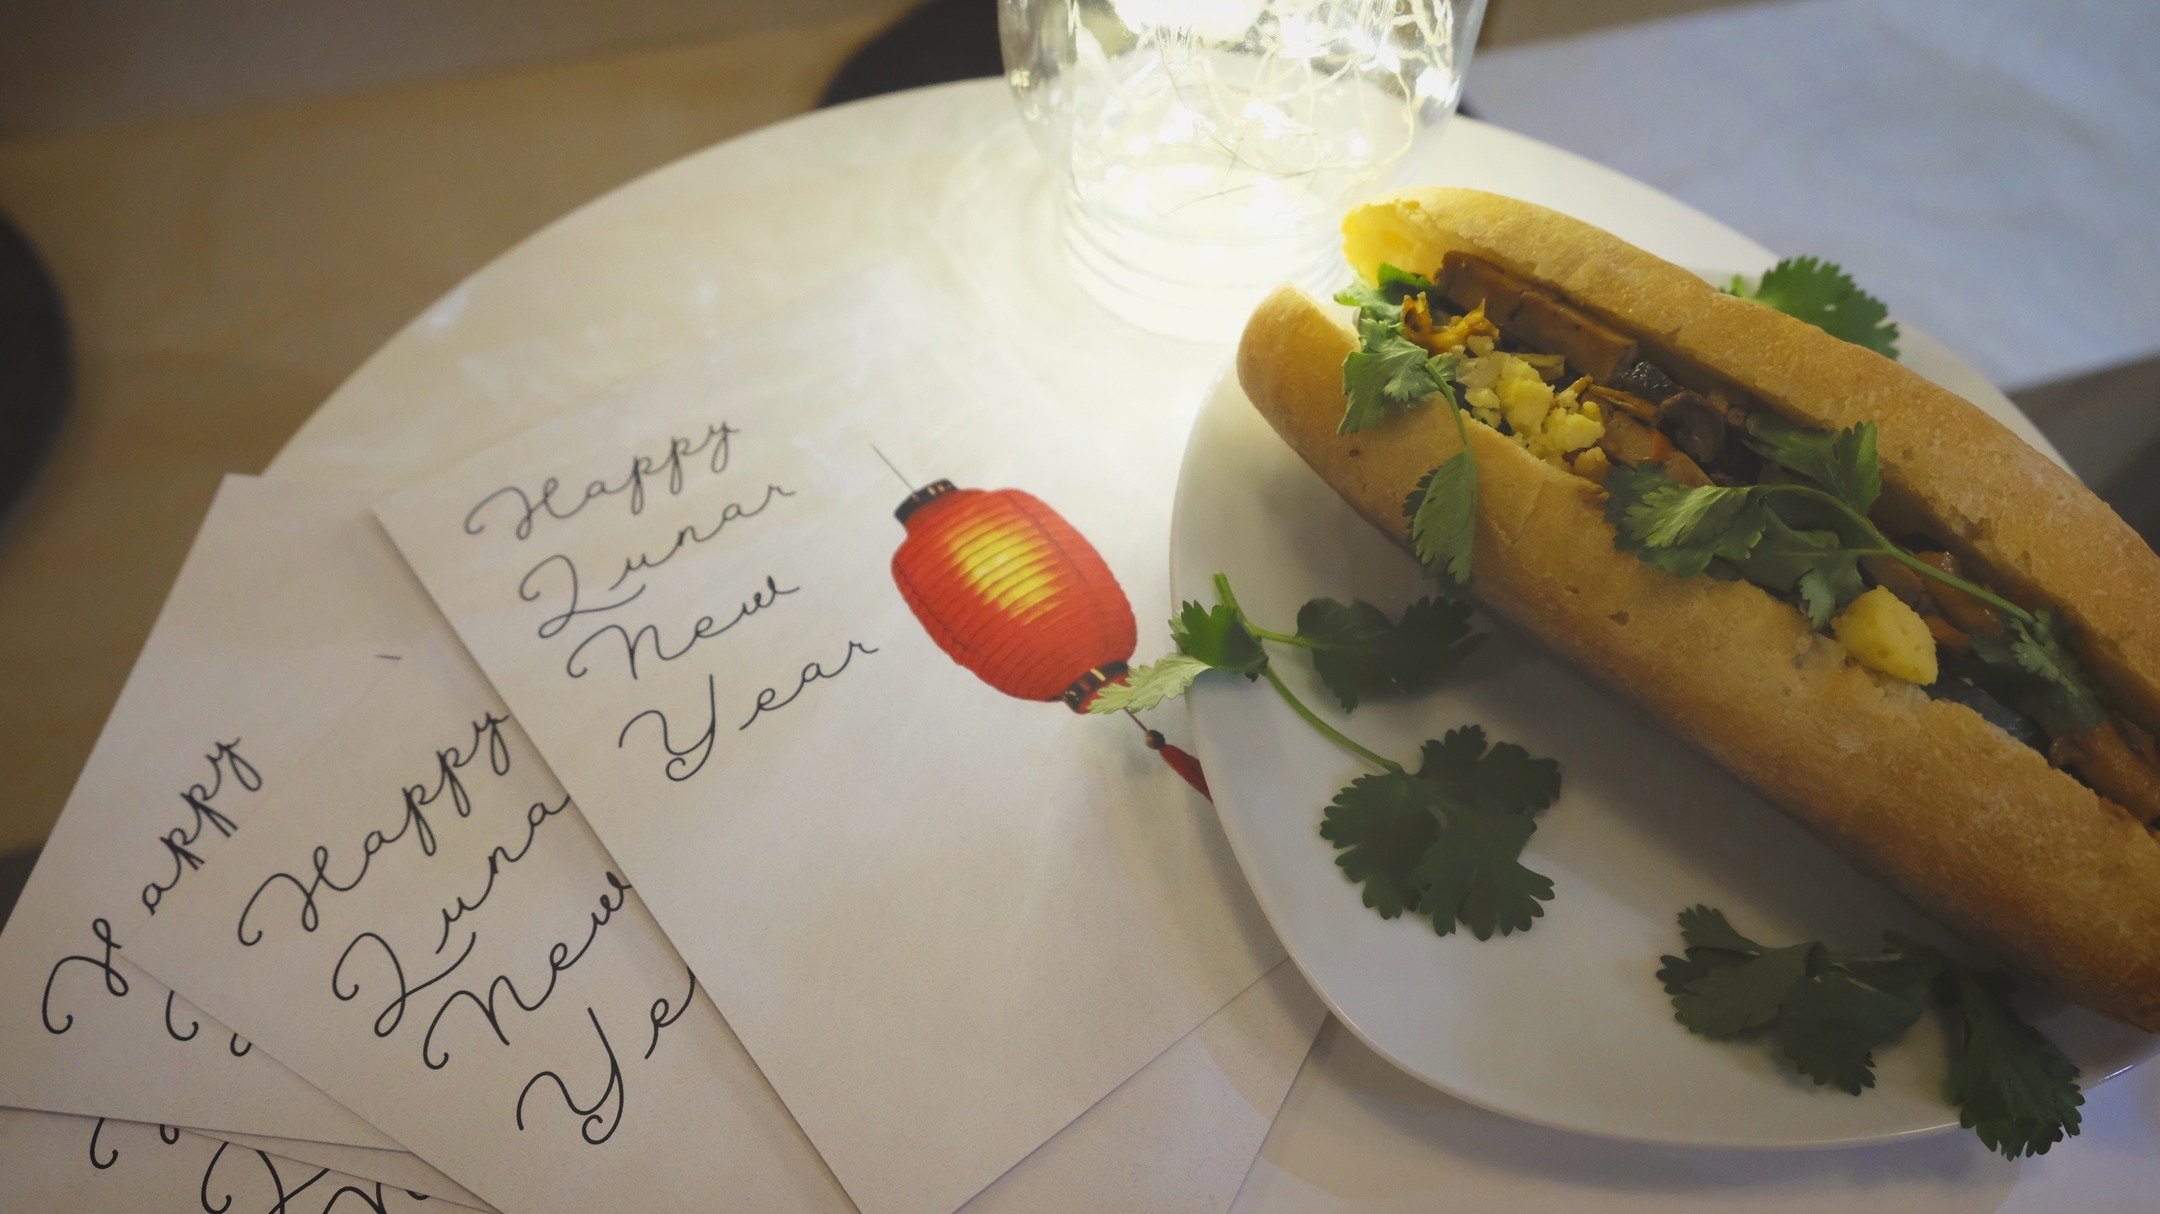 Happy
Lunar
New
Year
Happy
Luna
New
Ye
Happy